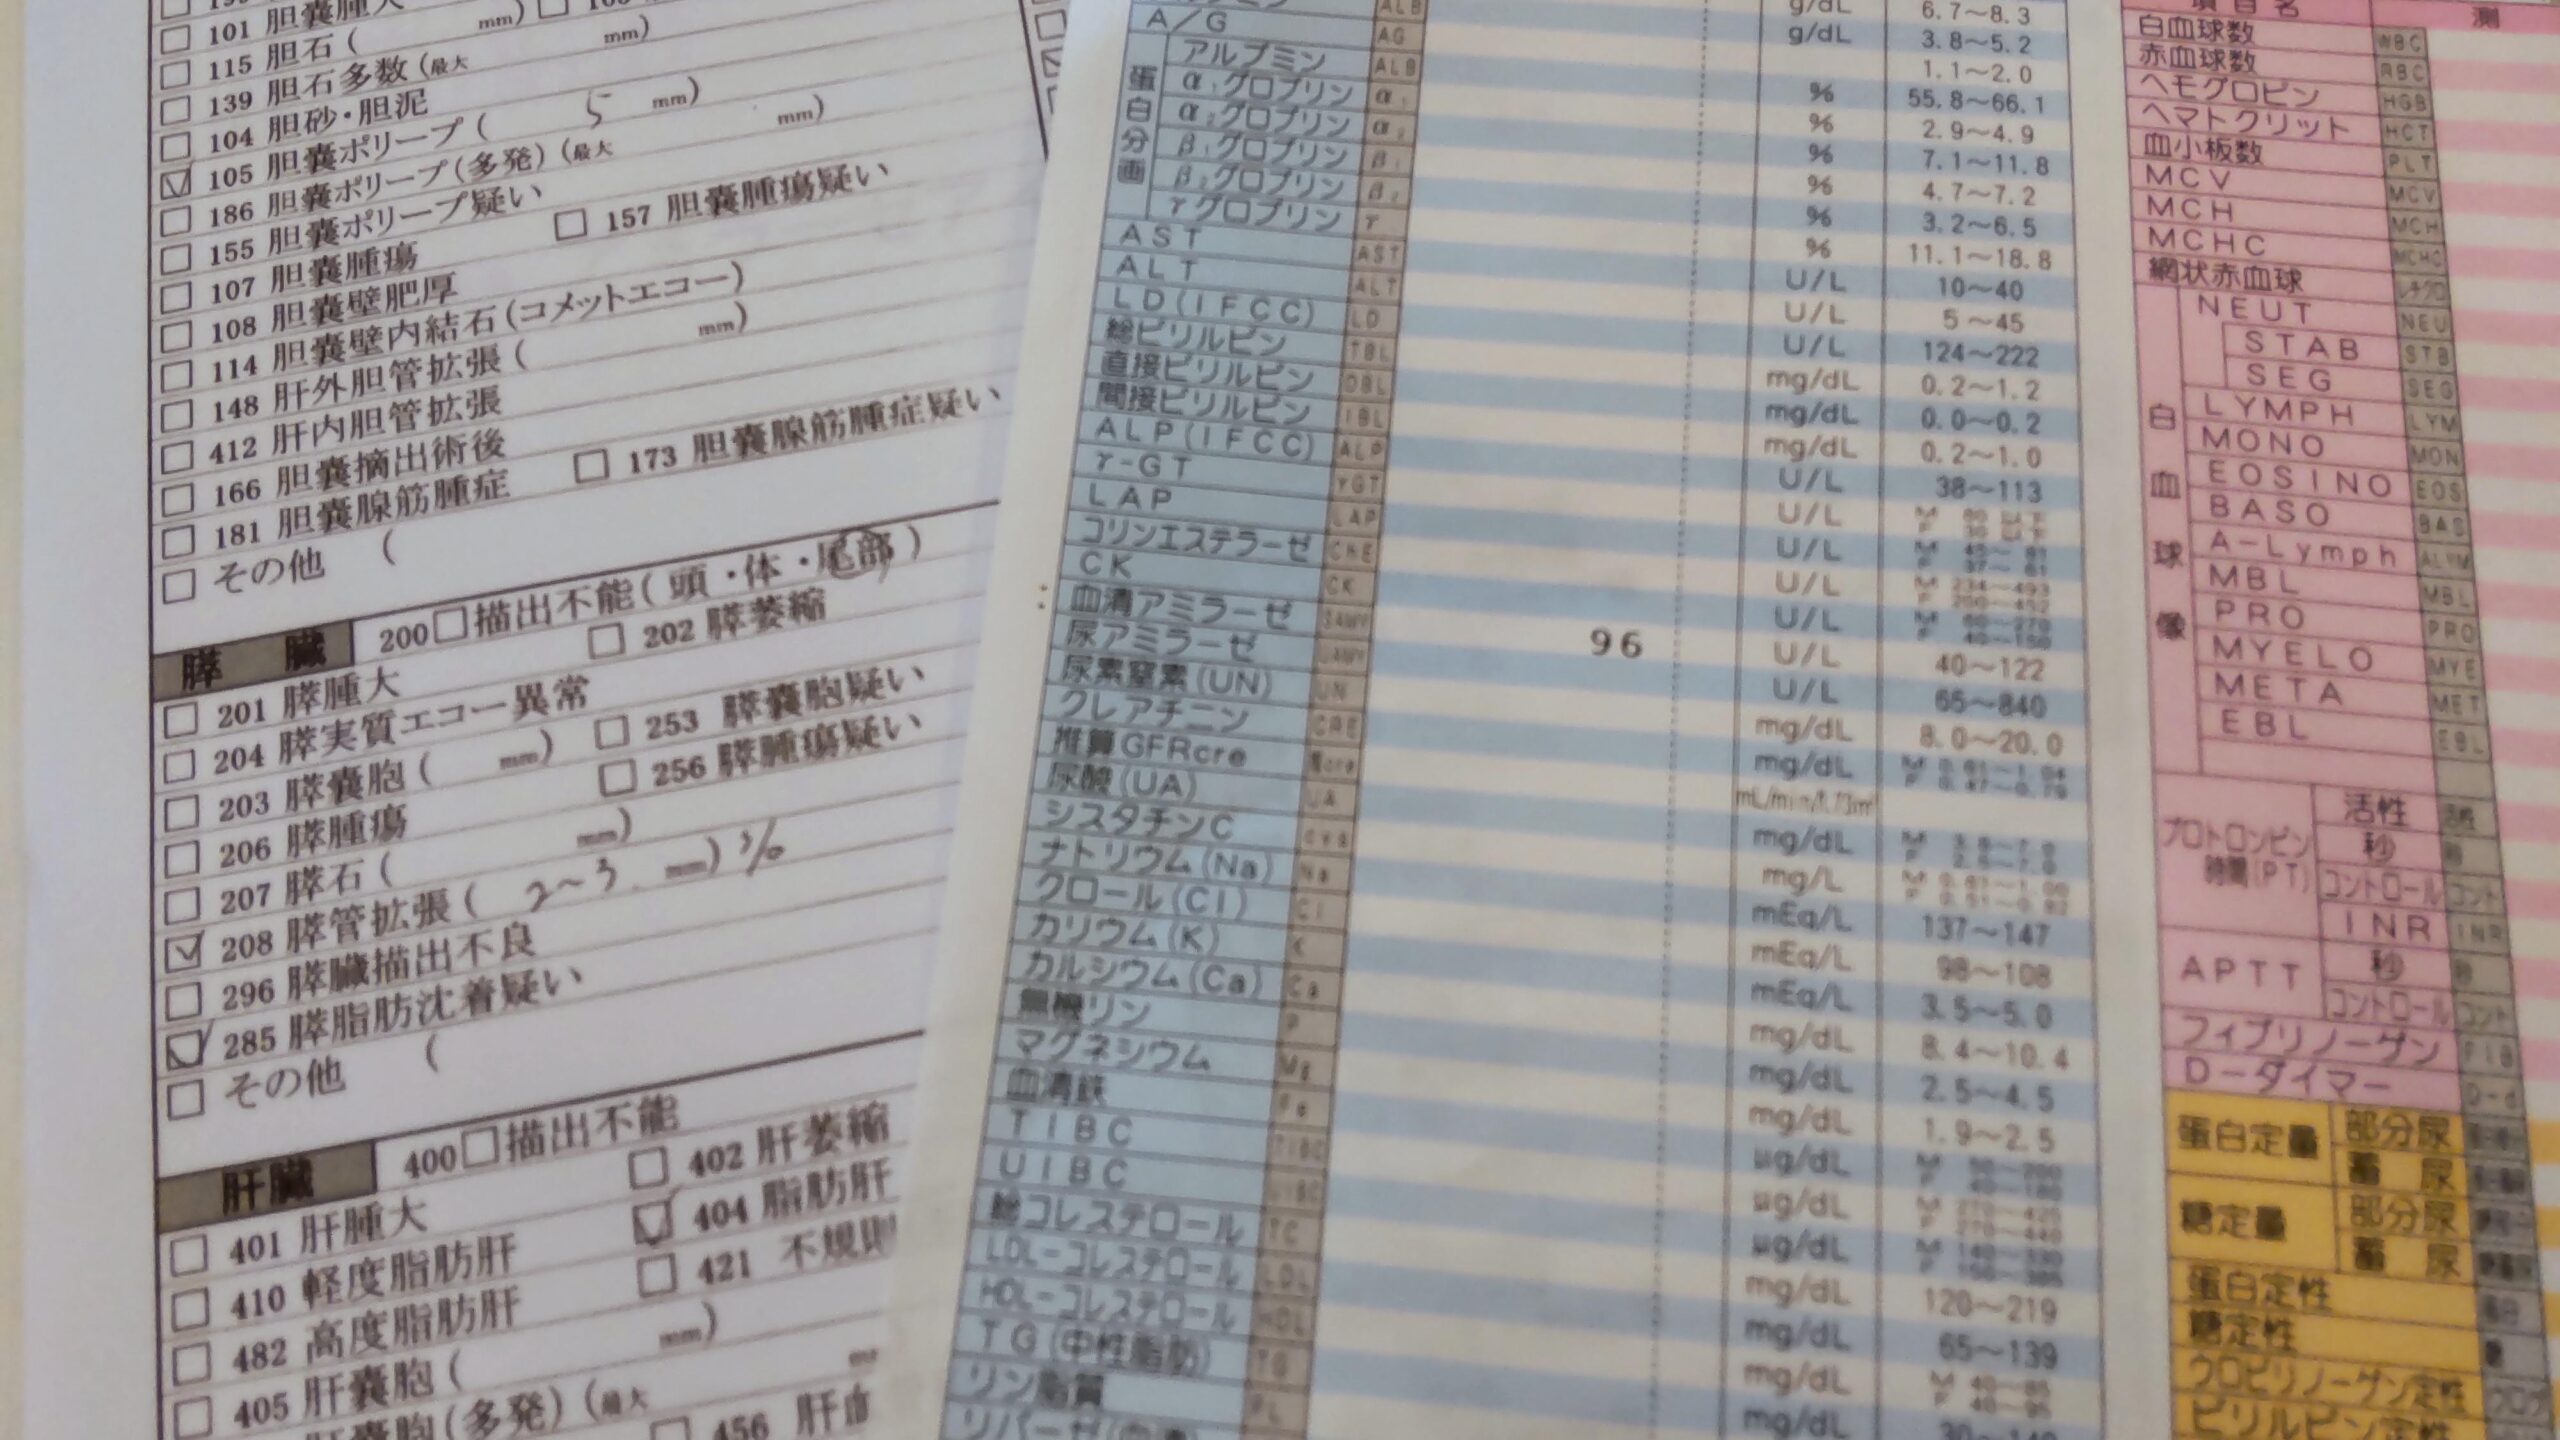 101 胆嚢腫大 mm)
115 胆石( mm)
139 胆石多数(最大
104 胆砂・胆泥
105 胆嚢ポリープ( 5 mm)
186 胆嚢ポリープ(多発)(最大 mm)
155 胆嚢ポリープ疑い
107 胆嚢腫瘍 157 胆嚢腫瘍疑い
108 胆嚢壁肥厚
114 胆嚢壁内結石(コメットエコー)
148 肝外胆管拡張( mm)
412 肝内胆管拡張
166 胆嚢摘出術後
181 胆嚢腺筋腫症 173 胆嚢腺筋腫症疑い
その他 (
膵 臓 200 描出不能(頭・体・尾部)
201 膵腫大 202 膵萎縮
204 膵実質エコー異常
203 膵嚢胞( mm) 253 膵嚢胞疑い
206 膵腫瘍 256 膵腫瘍疑い
207 膵石( mm)
208 膵管拡張( 2~3 mm)
296 膵臓描出不良
285 膵脂肪沈着疑い
その他 (
肝臓 400 描出不能
401 肝腫大 402 肝萎縮
410 軽度脂肪肝 404 脂肪肝
482 高度脂肪肝 421 不規則
405 肝嚢胞( mm)
肝嚢胞(多発)(最大
456 肝血
ALB g/dL 6.7~8.3
A/G AG g/dL 3.8~5.2
蛋白分画
アルブミン ALB 1.1~2.0
α₁グロブリン α₁ % 55.8~66.1
α₂グロブリン α₂ % 2.9~4.9
β₁グロブリン β₁ % 7.1~11.8
β₂グロブリン β₂ % 4.7~7.2
γグロブリン γ % 3.2~6.5
AST AST % 11.1~18.8
ALT ALT U/L 10~40
LD(IFCC) LD U/L 5~45
総ビリルビン TBL U/L 124~222
直接ビリルビン DBL mg/dL 0.2~1.2
間接ビリルビン IBL mg/dL 0.0~0.2
ALP(IFCC) ALP mg/dL 0.2~1.0
γ-GT γGT U/L 38~113
LAP LAP U/L
コリンエステラーゼ CHE U/L
CK CK U/L
血清アミラーゼ 96 U/L
尿アミラーゼ U/L 40~122
尿素窒素(UN) UN U/L 65~840
クレアチニン CRE mg/dL 8.0~20.0
推算GFRcre mg/dL
尿酸(UA) UA
シスタチンC mg/dL
ナトリウム(Na) Na mg/L
クロール(Cl) Cl mEq/L 137~147
カリウム(K) K mEq/L 98~108
カルシウム(Ca) Ca mEq/L 3.5~5.0
無機リン P mg/dL 8.4~10.4
マグネシウム Mg mg/dL 2.5~4.5
血清鉄 Fe mg/dL 1.9~2.5
TIBC μg/dL
UIBC μg/dL
総コレステロール TC μg/dL
LDL-コレステロール LDL mg/dL 120~219
HDL-コレステロール HDL mg/dL 65~139
TG(中性脂肪) TG mg/dL
リン脂質 PL mg/dL
項目名 測
白血球数 WBC
赤血球数 RBC
ヘモグロビン HGB
ヘマトクリット HCT
血小板数 PLT
MCV MCV
MCH MCH
MCHC MCHC
網状赤血球
白血球像
NEUT NEU
STAB STB
SEG SEG
LYMPH LYM
MONO MON
EOSINO EOS
BASO BAS
A-Lymph ALYM
MBL MBL
PRO PRO
MYELO MYE
META MET
EBL EBL
プロトロンビン時間(PT)
活性
秒
コントロール コント
INR INR
APTT
秒
コントロール コント
フィブリノーゲン FIB
D-ダイマー D-d
蛋白定量 部分尿
蓄 尿
糖定量 部分尿
蓄 尿
蛋白定性
糖定性
ウロビリノーゲン定性 ウロ
ビリルビン定性